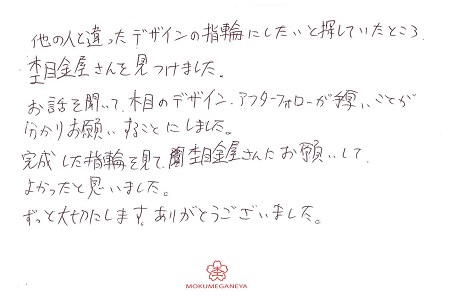 他の人と違ったデザインの指輪にしたいと探していたところ、
杢目金屋さんを見つけました。
お話を聞いて、木目のデザイン、アフターフォローが手厚いことが
分かりお願いすることにしました。
完成した指輪を見て、杢目金屋さんにお願いして
よかったと思いました。
ずっと大切にします。ありがとうございました。
MOKUMEGANEYA